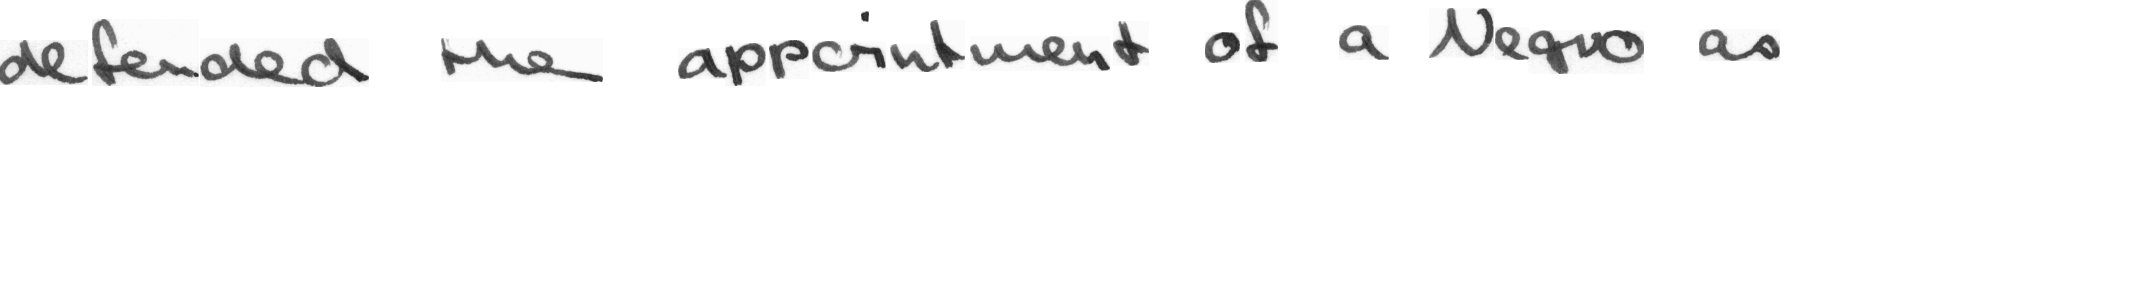 defended the appointment of a Negro as